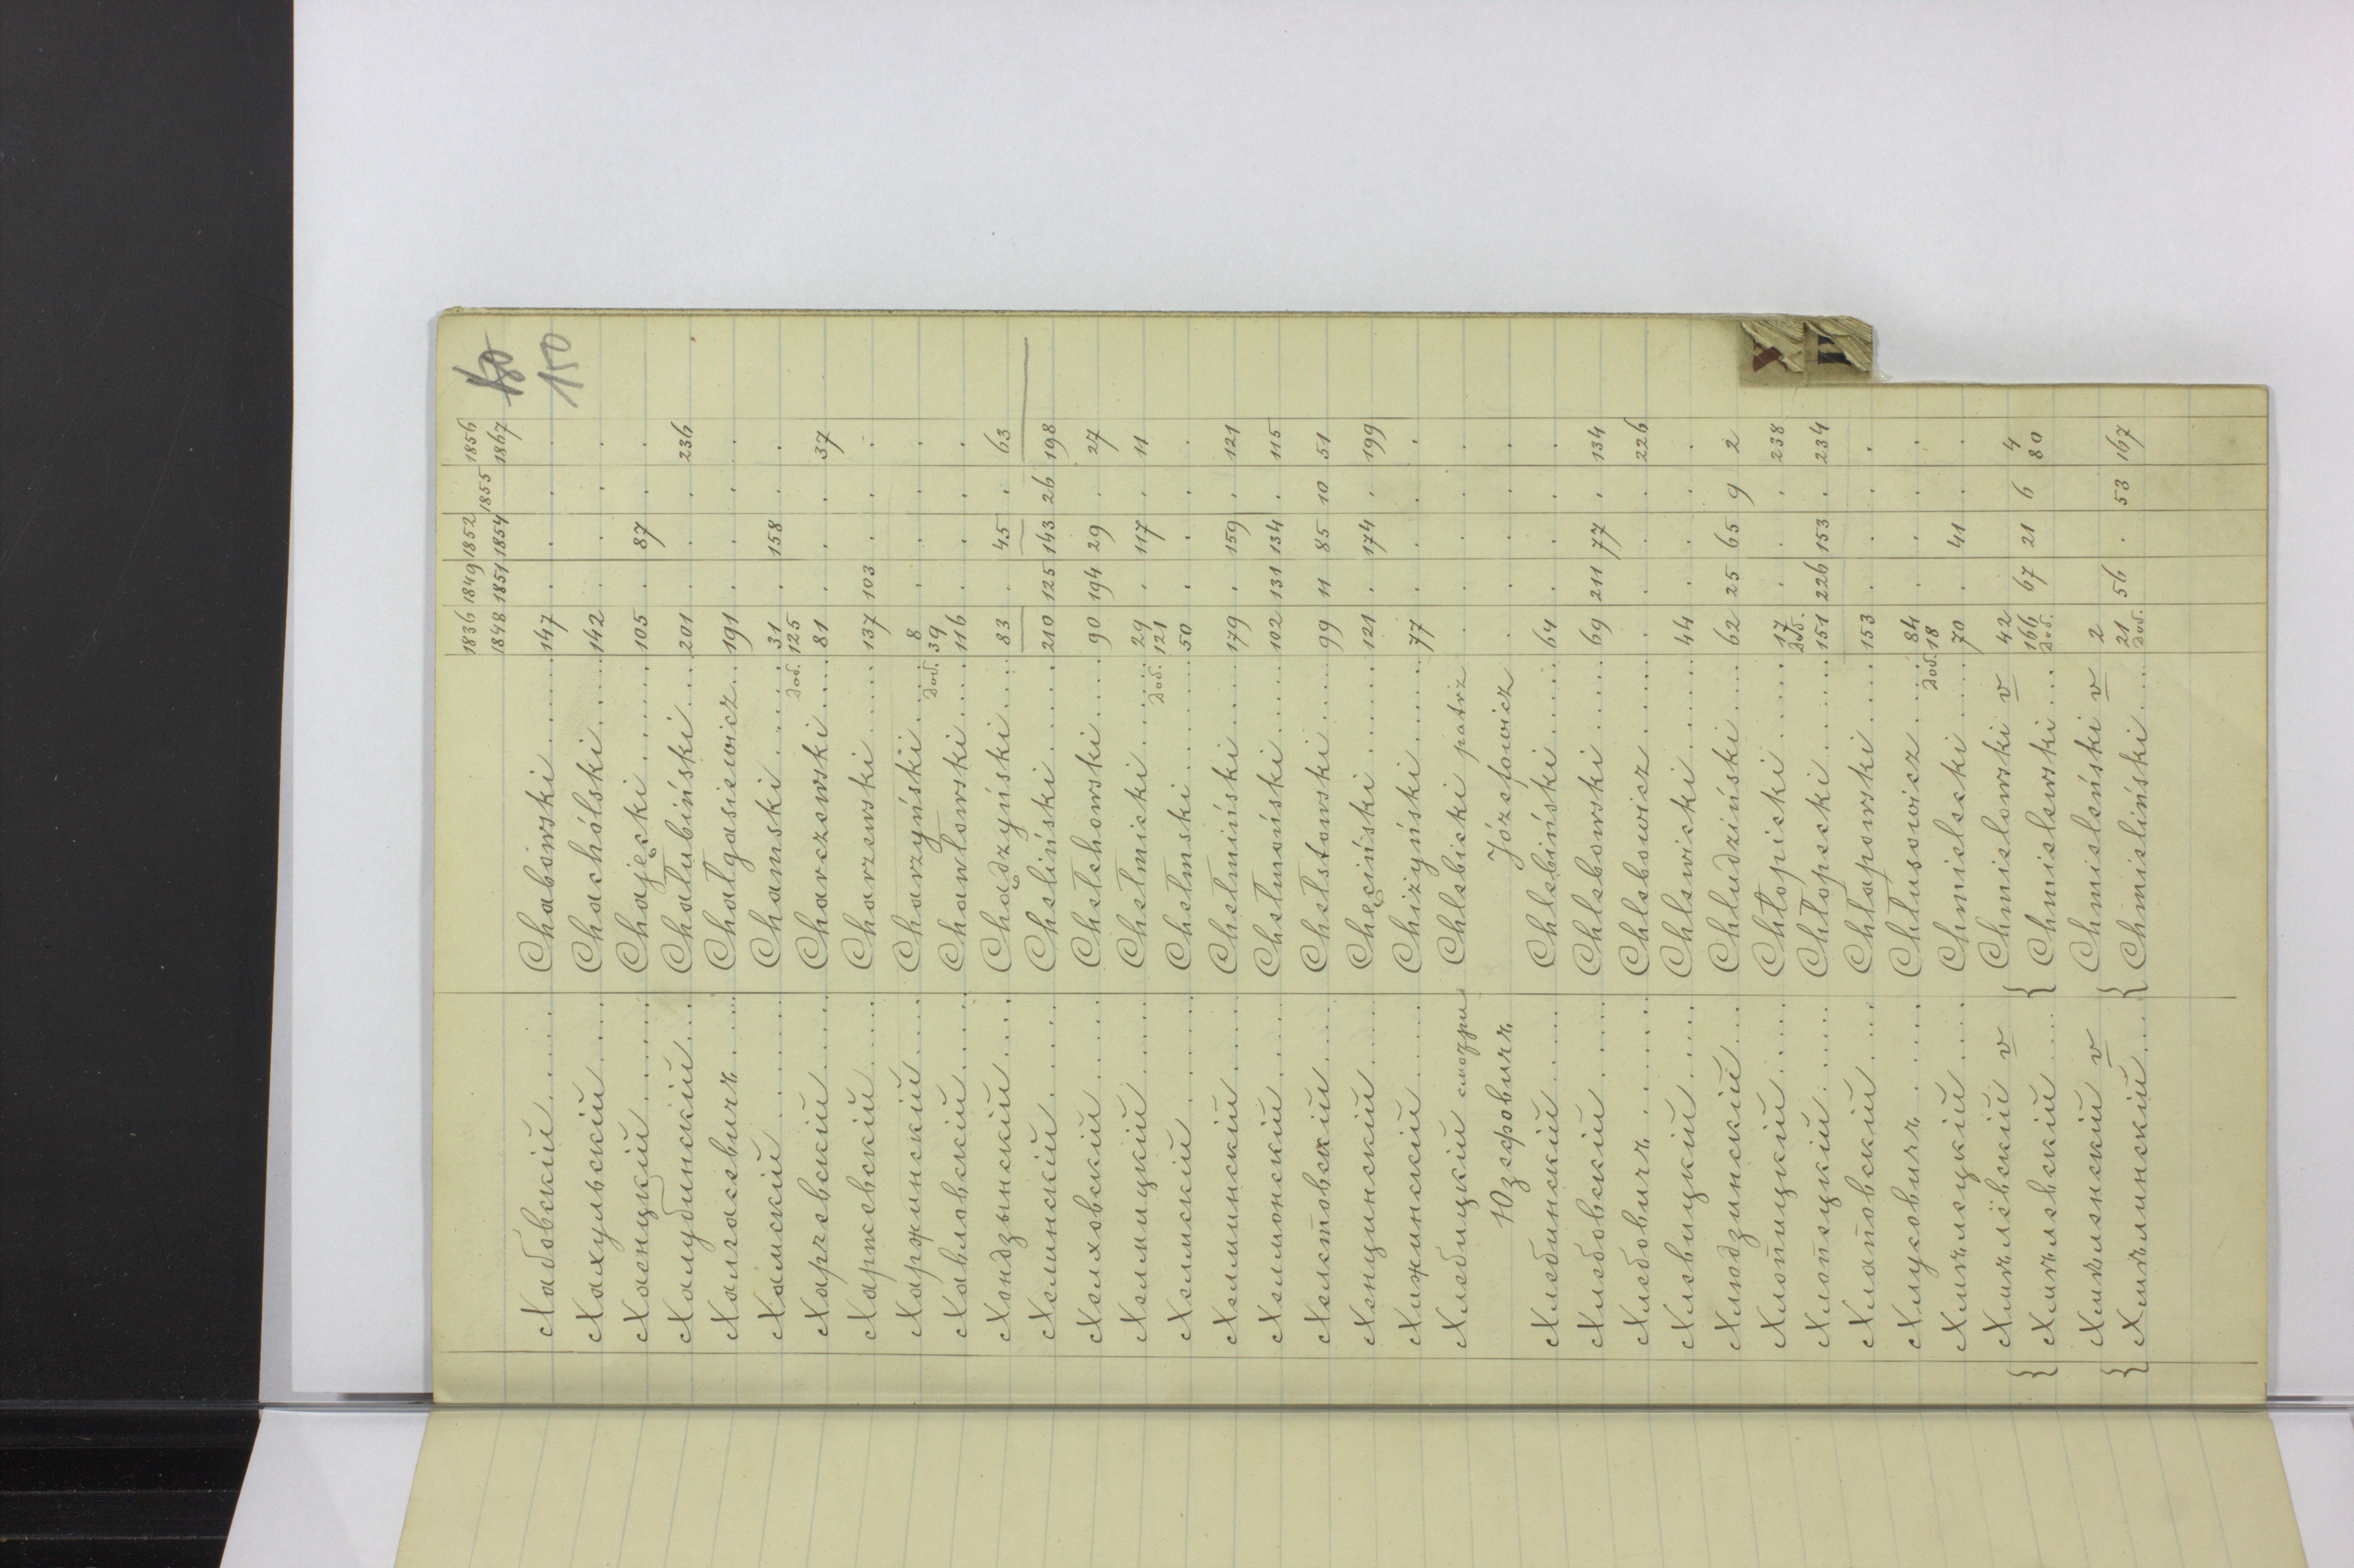 180
150
1836 1849 1852 1855 1856
1848 1851 1854 1867
Хабовскій ..... Chabowski ..... 147 . . . .
Хахульскій .... Chachólski .... 142 . . . .
Хаенцкій ..... Chajęcki ..... 105 . 87 . .
Халубинскій ... Chałubiński ... 201 . . . 236
Халгасевичъ .... Chałgasiewicz ... 191 . . . .
Хамскій ...... Chamski ..... 31 . 158 . .
дод. 125
Харчевскій .... Charczewski .... 81 . . . 37
Харжевскій .... Charzewski .... 137 103 . . .
Харжинскій .... Charzyński .... 8 . . . .
дод. 39
Хавловскій .... Chawłowski .... 116 . . . .
Хондзынскій .... Chądzyński .... 83 . 45 . 63
Хелинскій ..... Cheliński ..... 210 125 143 26 198
Хелховскій ..... Chełchowski .... 90 194 29 . 27
Хелмицкій ..... Chełmicki ..... 29 . 117 . 11
дод. 121
Хелмскій ...... Chełmski ...... 50 . . . .
Хелминскій ..... Chełmiński ..... 179 . 159 . 121
Хелмонскій ..... Chełmoński ..... 102 131 134 . 115
Хелстовскій .... Chełstowski .... 99 11 85 10 51
Хенцинскій ..... Chęciński ...... 121 . 174 . 199
Хижинскій ..... Chiżyński ..... 77 . . . .
Хлебицкій смотри Chlebicki patrz . . . . .
Юзефовичъ Józefowicz . . . .
Хлебинскій ..... Chlebiński ..... 64 . . . .
Хлебовскій ..... Chlebowski ..... 69 211 77 . 134
Хлебовичъ ...... Chlebowicz ..... . . . . 226
Хлевицкій ..... Chlewicki ..... 44 . . . .
Хлюдзинскій .... Chludziński .... 62 25 65 9 2
Хлопицкій ..... Chłopicki ..... 17 . . . 238
дод.
Хлопецкій ..... Chłopecki ..... 151 226 153 . 234
Хлаповскій .... Chłapowski .... 153 . . . .
Хлусовичъ ..... Chłusowicz .... 84 . . . .
дод. 18
Хмѣлецкій .... Chmielecki .... 70 . 41 . .
Хмѣлёвскій v Chmielowski v 42 4
Хмѣлевскій .... Chmielewski ... 166 67 21 6 80
дод.
Хмѣленскій v Chmieleński v 2
Хмѣлинскій .... Chmieliński .... 21 56 . 53 167
дод.